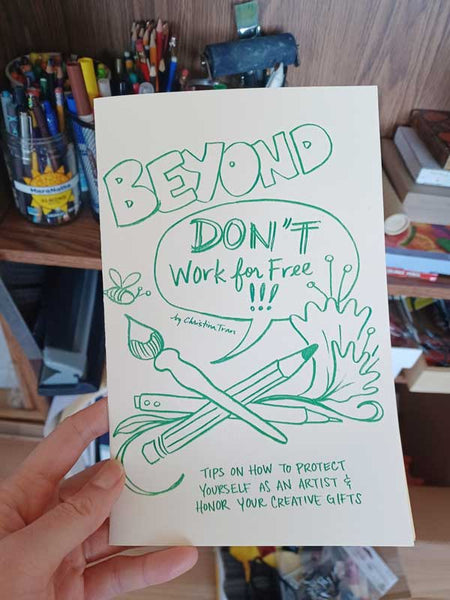 BEYOND
DON'T
Work for Free
!!!
by Christina Tran
TIPS ON HOW TO PROTECT
YOURSELF AS AN ARTIST &
HONOR YOUR CREATIVE GIFTS